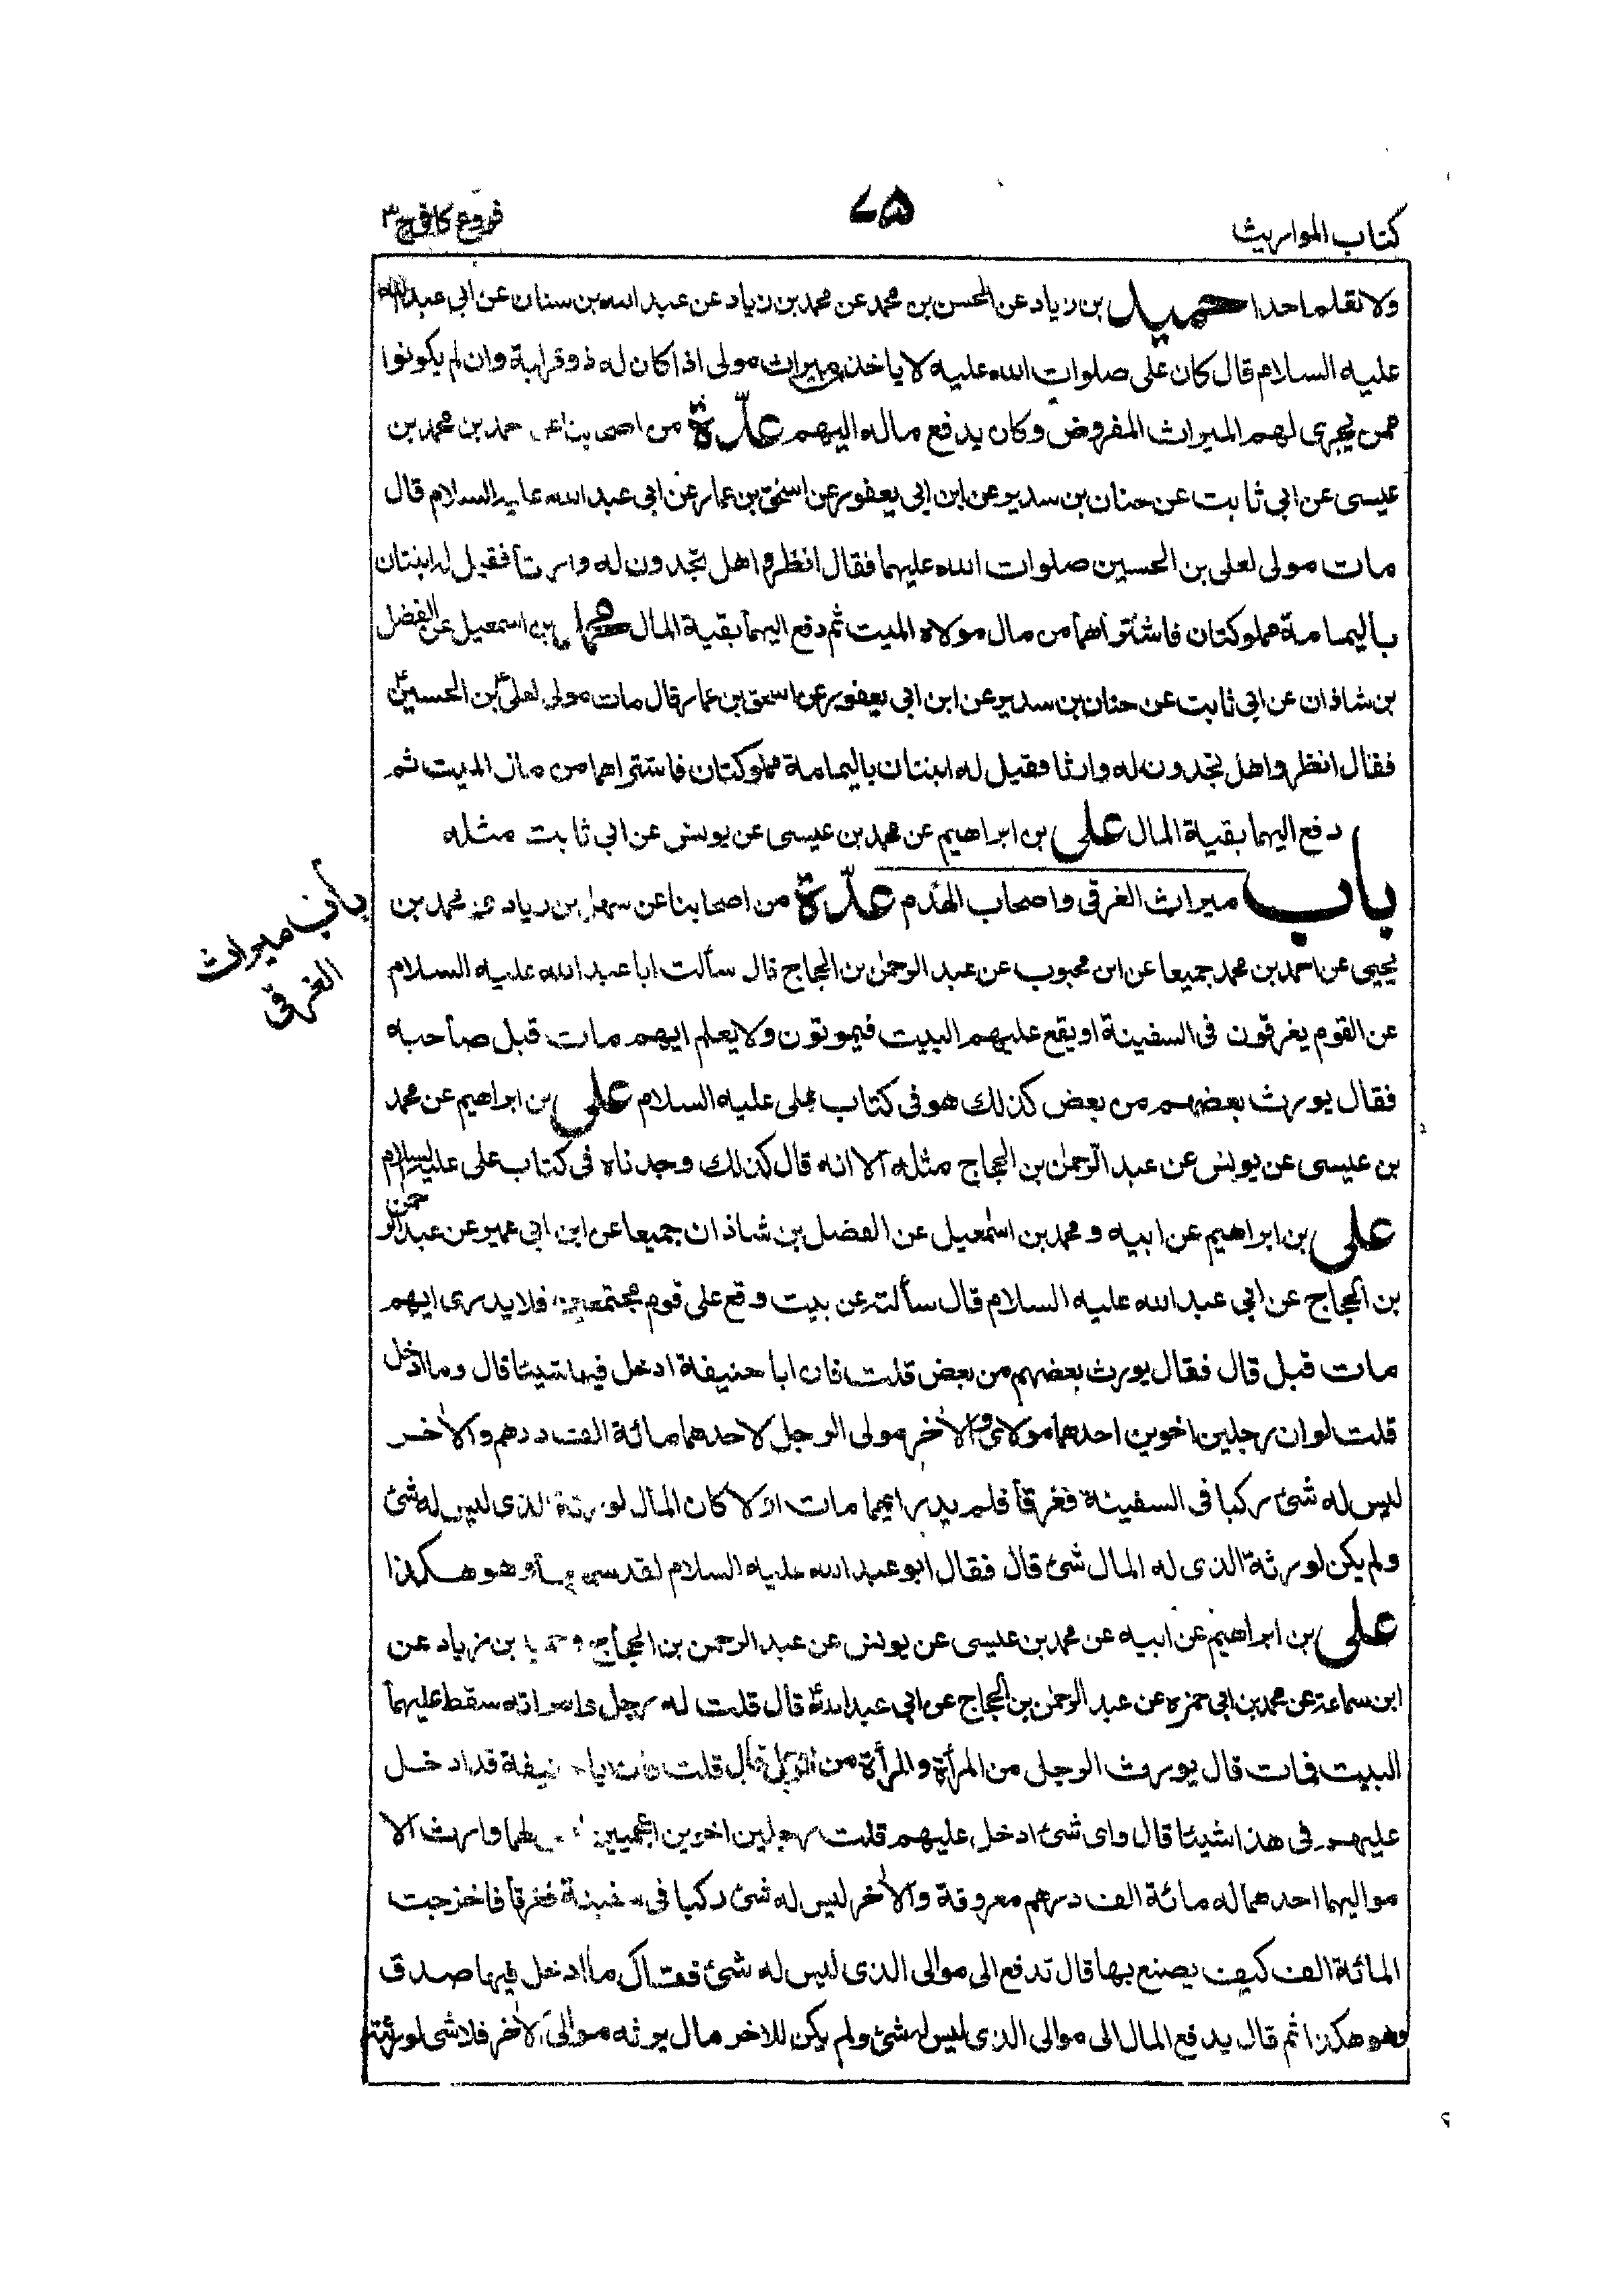 كتاب المواريث
٧٥
فروع كافى ج٣
ولا نقلم احدا حميد بن زياد عن الحسن بن محمد عن محمد بن زياد عن عبد الله بن سنان عن ابى عبد الله
عليه السلام قال كان على صلوات الله عليه لا ياخذ ميراث مولى اذا كان له ذو قرابة وان لم يكونوا
ممن يجرى لهم الميراث المفروض وكان يدفع ماله اليهم عدّة من اصحابنا عن حمد بن محمد بن
عيسى عن ابى ثابت عن حنان بن سدير عن ابن ابى يعفور عن اسحٰق بن عمار عن ابى عبد الله عليه السلام قال
مات مولى لعلى بن الحسين صلوات الله عليهما فقال انظروا هل تجدون له وارثا فقيل له ابنتان
باليمامة مملوكتان فاشتراهما من مال مولاه الميت ثم دفع اليهما بقية المال محمد بن اسمعيل عن الفضل
بن شاذان عن ابى ثابت عن حنان بن سدير عن ابن ابى يعفور عن اسحق بن عمار قال مات مولى لعلىؑ بن الحسينؑ
فقال انظروا هل تجدون له وارثا فقيل له ابنتان باليمامة مملوكتان فاشتراهما من مال الميت ثم
دفع اليهما بقية المال على بن ابراهيم عن محمد بن عيسى عن يونس عن ابى ثابت مثله
باب ميراث الغرقى واصحاب الهدم عدّة من اصحابنا عن سهل بن زياد و محمد بن
باب ميراث
الغرقى
يحيى عن احمد بن محمد جميعا عن ابن محبوب عن عبد الرحمٰن بن الحجاج قال سألت ابا عبد الله عليه السلام
عن القوم يغرقون فى السفينة او يقع عليهم البيت فيموتون ولا يعلم ايهم مات قبل صاحبه
فقال يورث بعضهم من بعض كذلك هو فى كتاب على عليه السلام على بن ابراهيم عن محمد
بن عيسى عن يونس عن عبد الرحمٰن بن الحجاج مثله الا انه قال كذلك وجدناه فى كتاب على عليه السلام
على بن ابراهيم عن ابيه و محمد بن اسمٰعيل عن الفضل بن شاذان جميعا عن ابن ابى عمير عن عبد الرحمن
بن الحجاج عن ابى عبد الله عليه السلام قال سألته عن بيت وقع على قوم مجتمعين فلا يدرى ايهم
مات قبل قال فقال يورث بعضهم من بعض قلت فان ابا حنيفة ادخل فيها شيئا قال وما ادخل
قلت لو ان رجلين اخوين احدهما مولاى والاٰخر مولى الرجل لاحدهما مائة الف درهم والاٰخر
ليس له شئ ركبا فى السفينة فغرقا فلم يدر ايهما مات اولا كان المال لورثة الذى ليس له شئ
ولم يكن لورثة الذى له المال شئ قال فقال ابو عبد الله عليه السلام لقد سمعها وهو هكذا
على بن ابراهيم عن ابيه عن محمد بن عيسى عن يونس عن عبد الرحمن بن الحجاج وحميد بن زياد عن
ابن سماعة عن محمد بن ابى حمزه عن عبد الرحمٰن بن الحجاج عن ابى عبد اللهؑ قال قلت له رجل وامراته سقط عليهما
البيت فمات قال يورث الرجل من المرأة والمرأة من الرجل قال قلت فان ابا حنيفة قد ادخل
عليهم فى هذا شيئا قال واى شئ ادخل عليهم قلت رجلين اخوين اعجميين لهما وارث الا
مواليهما احدهما له مائة الف درهم معروفة والاٰخر ليس له شئ ركبا فى سفينة فغرقا فاخرجت
المائة الف كيف يصنع بها قال تدفع الى موالى الذى ليس له شئ فقال ما ادخل فيها صدق
وهو هكذا ثم قال يدفع المال الى موالى الذى ليس له شئ ولم يكن للاخر مال يرثه موالى الاٰخر فلا شى لورثته